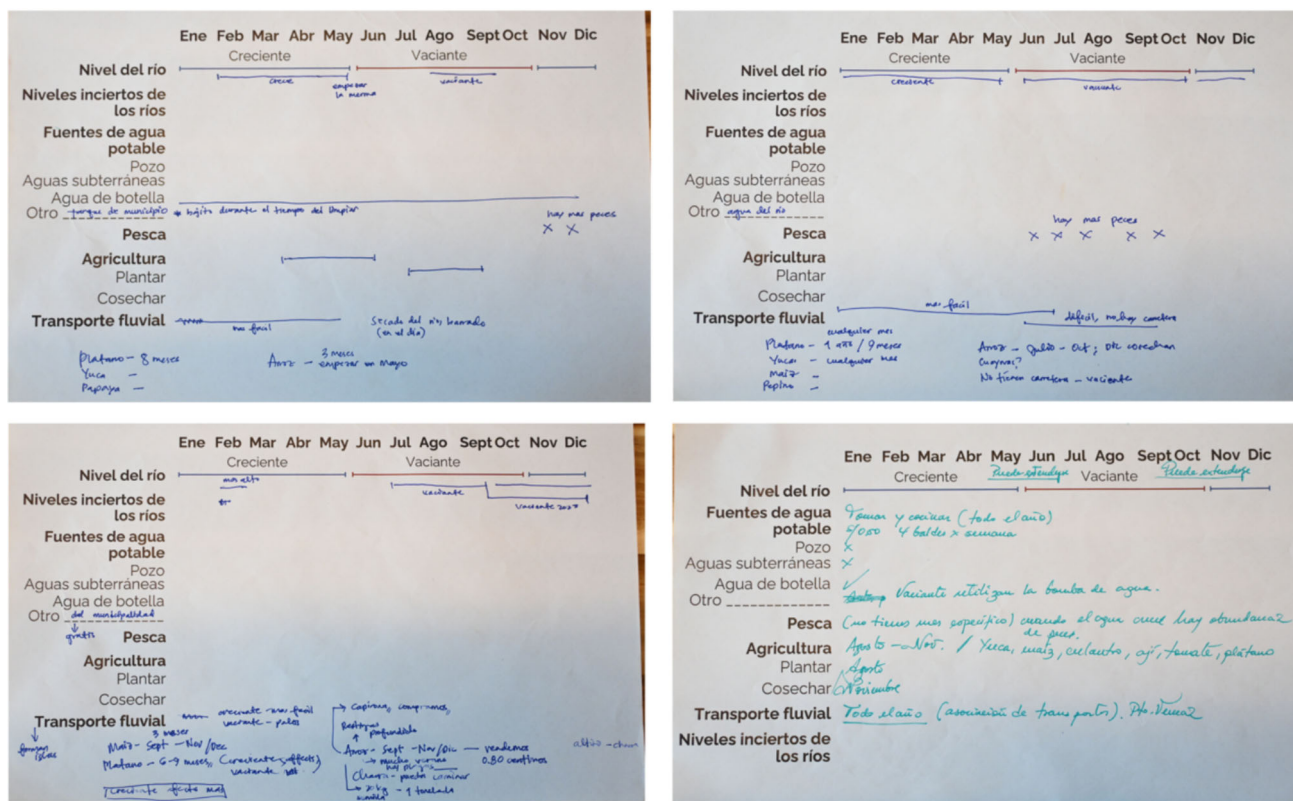 Ene Feb Mar Abr May Jun Jul Ago Sept Oct Nov Dic
Creciente Vaciante
Nivel del río
crece empezar vaciante
la merma
Niveles inciertos de
los ríos
Fuentes de agua
potable
Pozo
Aguas subterráneas
Agua de botella
Otro tanque de municipio bajito durante el tiempo del limpiar
hay mas peces
Pesca X X
Agricultura
Plantar
Cosechar
Transporte fluvial
mas facil
Secado del rio,
(en el día)
Platano - 8 meses
Yuca -
Papaya -
3 meses
Arroz - empezar en Mayo
Ene Feb Mar Abr May Jun Jul Ago Sept Oct Nov Dic
Creciente Vaciante
Nivel del río
creciente vaciante
Niveles inciertos de
los ríos
Fuentes de agua
potable
Pozo
Aguas subterráneas
Agua de botella
Otro agua del rio
hay mas peces
Pesca X X X X X
Agricultura
Plantar
Cosechar
mas facil
Transporte fluvial
dificil, no hay carretera
cualquier mes
Platano - 1 año / 9 meses
Yuca - cualquier mes
maiz -
Pepino -
Arroz - Julio - Oct; Dic cosechan
No tienen carretera - vaciente
Ene Feb Mar Abr May Jun Jul Ago Sept Oct Nov Dic
Creciente Vaciante
Nivel del río
mas alto
vaciante
vaciante
Niveles inciertos de
los ríos
Fuentes de agua
potable
Pozo
Aguas subterráneas
Agua de botella
Otro del municipalidad
gratis
Pesca
Agricultura
Plantar
Cosechar
Transporte fluvial
creciente mas facil
vaciante - palos
3 meses
Maiz - Sept - Nov/Dec
Platano - 6-9 meses
creciente afecta mas
Arroz - Sept - Nov/Dic - vendemos
0.80 centimos
1 tonelada
Ene Feb Mar Abr May Jun Jul Ago Sept Oct Nov Dic
Creciente Vaciante
Puede extenderse Puede extenderse
Nivel del río
Fuentes de agua
potable
Tomar y cocinar (todo el año)
4 baldes x semana
Pozo X
Aguas subterráneas X
Agua de botella ✓
Otro Vaciante utilizan la bomba de agua.
Pesca (no tienes mes específico) cuando el agua crece hay abundancia
de peces.
Agricultura Agosto - Nov. / Yuca, maíz, culantro, ají, tomate, plátano
Plantar Agosto
Cosechar Noviembre
Transporte fluvial Todo el año (asociación de transportes).
Niveles inciertos de
los ríos